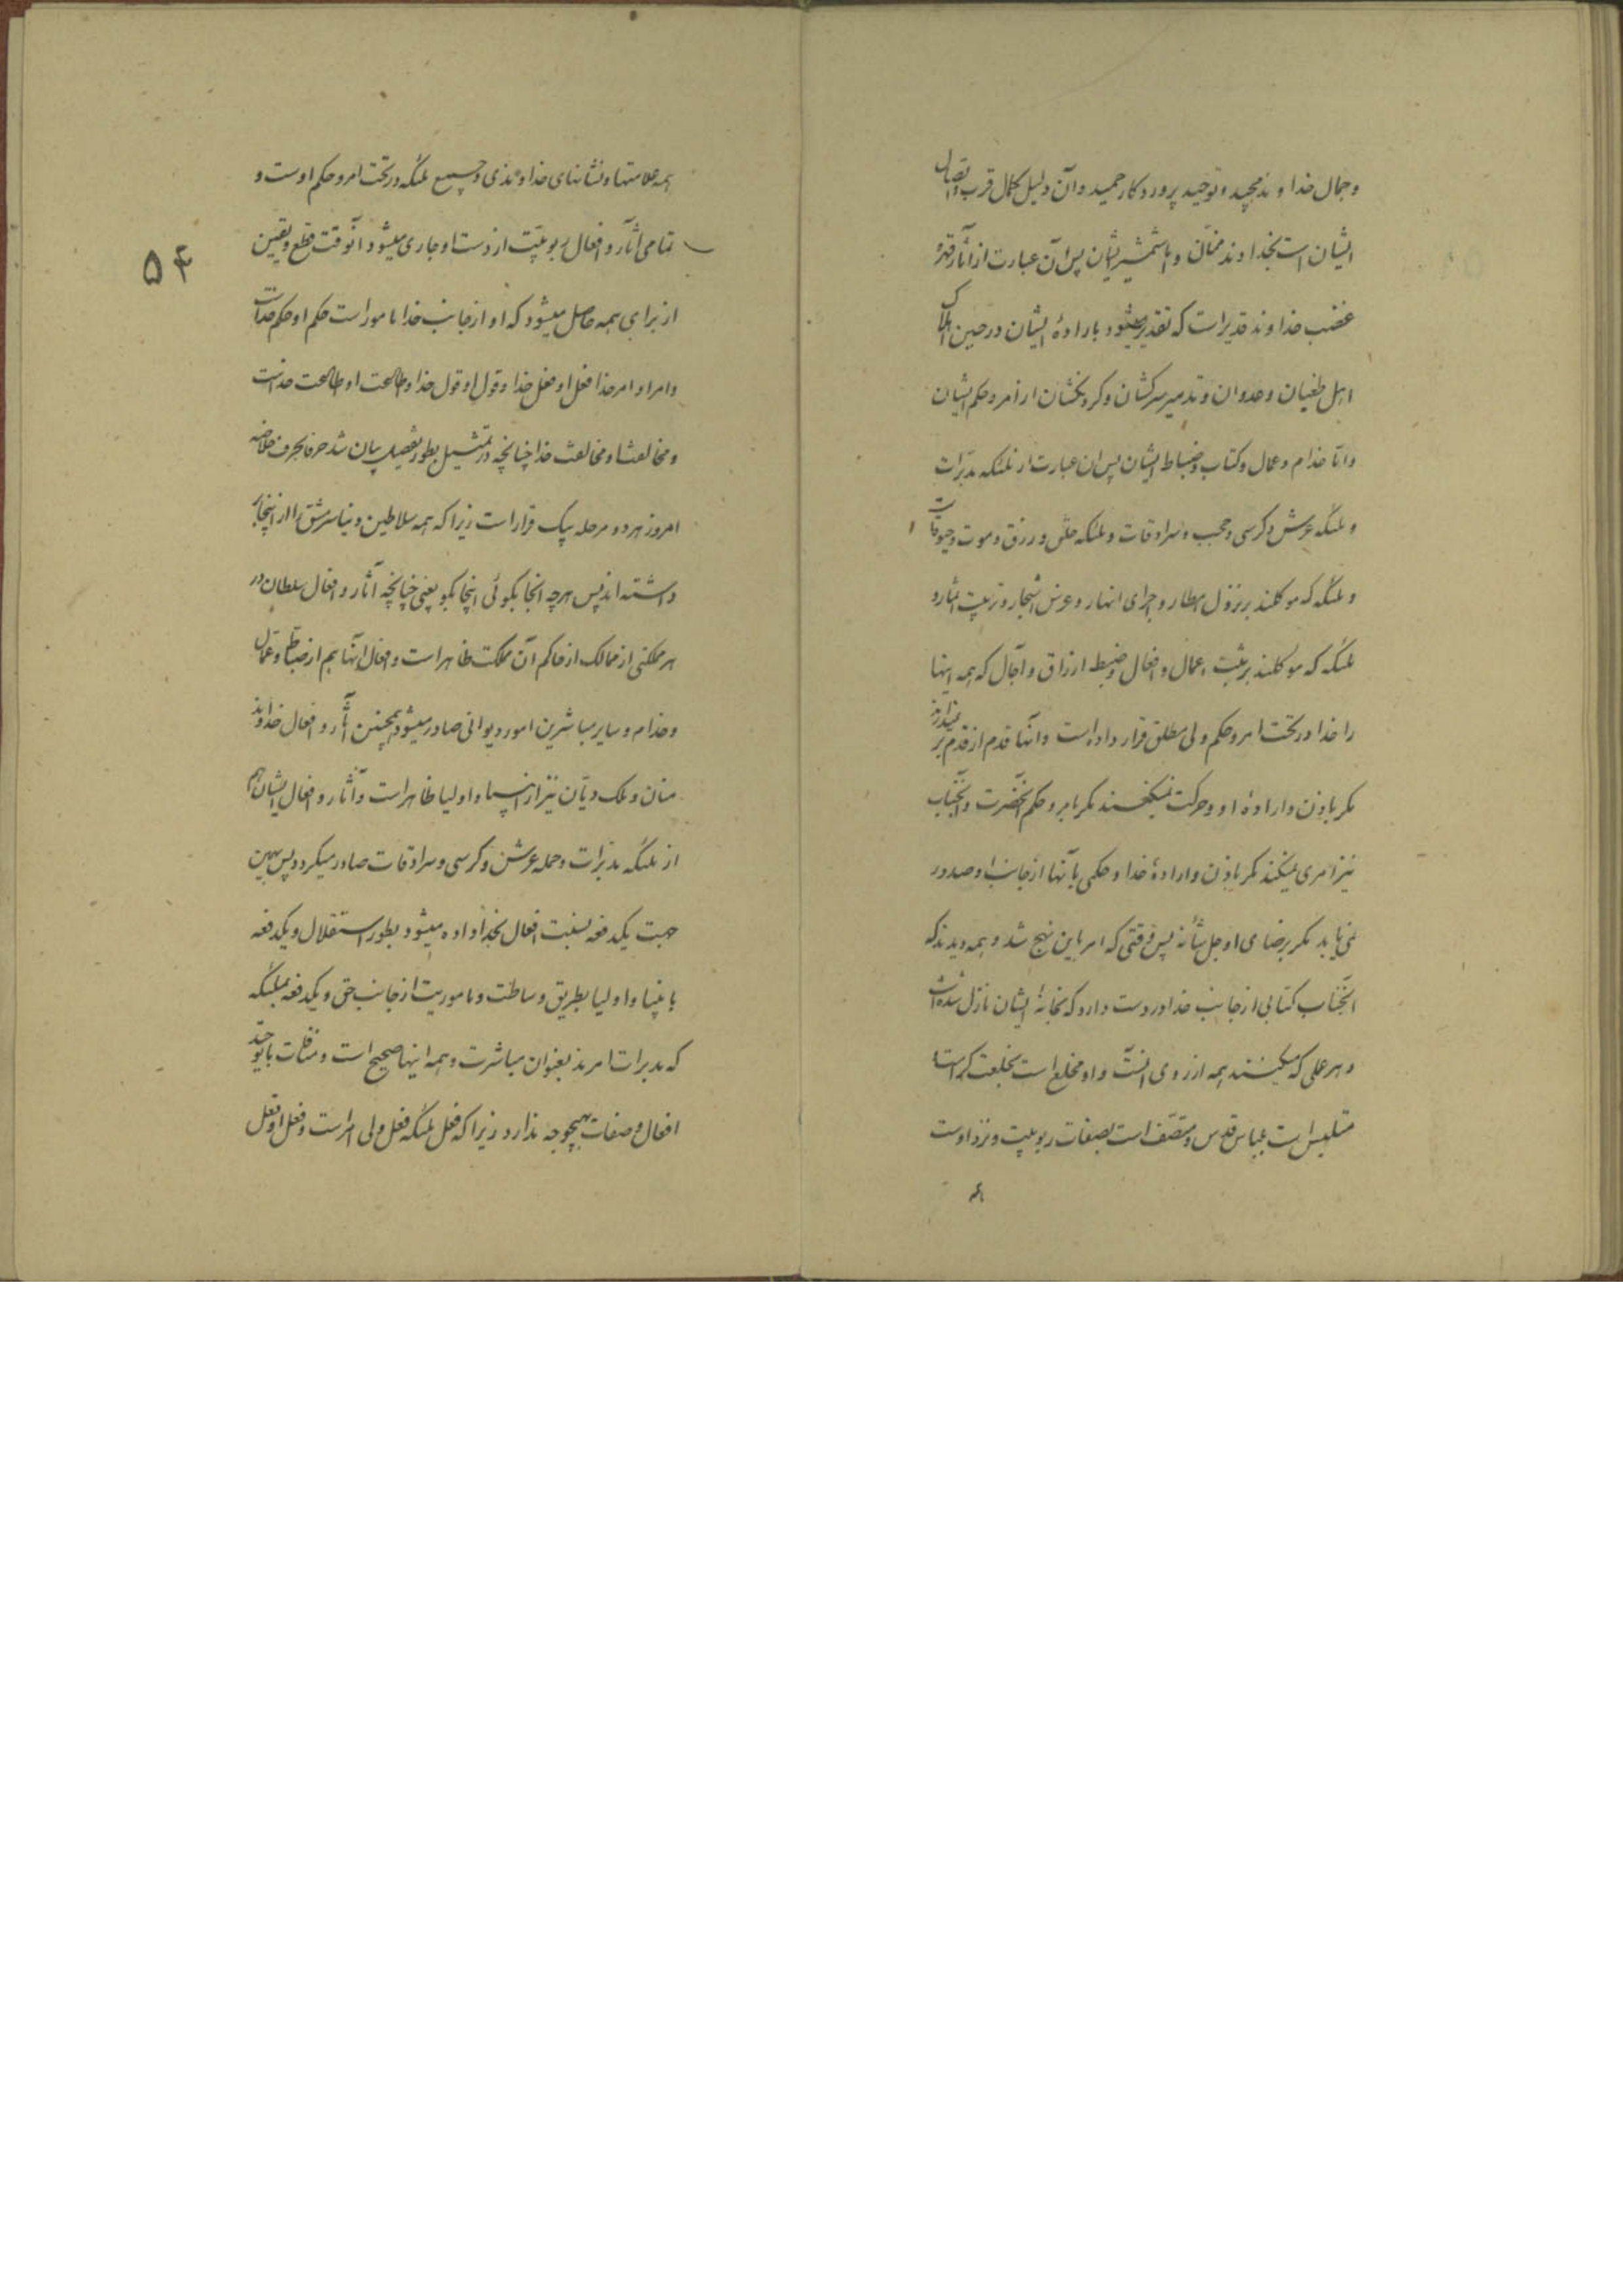 و جمال خداوند مجید و توحید پروردکار حمید و آن دلیل کمال قرب و اتصال
ایشان است بخداوند منان و اما شمشیر ایشان پس آن عبارت از آثار قهر و
غضب خداوند قدیر است که تقدیر میشود باراده ایشان در حین اهلاک
اهل طغیان و عدوان و تدمیر سرکشان و کردنکشان از امر و حکم ایشان
و اما خدام و عمال و کتاب و ضباط ایشان پس ان عبارت از ملئکه مدبرات
و ملئکه عرش و کرسی و حجب و سرادقات و ملئکه خلق و رزق و موت و حیوة است
و ملئکه که موکلند بر نزول امطار و اجرای انهار و غرس اشجار و تربیت اثمار و
ملئکه که موکلند بر ثبت اعمال و افعال و ضبط ارزاق و آجال که همه اینها
را خدا در تحت امر و حکم ولی مطلق قرار داده است و آنها قدم از قدم بر نمیدارند
مکر باذن و اراده او و حرکت نمیکنند مکر بامر و حکم آنحضرت و آنجناب
نیز امری نمیکند مکر باذن و اراده خدا و حکمی بآنها از جانب او صدور
نمی یابد مکر برضای او جل شأنه پس وقتی که امر باین نهج شد و همه دیدند که
آنجناب کتابی از جانب خدا در دست دارد که بخانه ایشان نازل شده است
و هر عملی که میکنند همه از روی انست و او مخلع است بخلعت کرامت
متلبس است بلباس قدس و متصف است بصفات ربوبیت و نزد اوست
همه
همه علامتها و نشانهای خداوندی و جمیع ملئکه در تحت امر و حکم اوست و
تمامی آثار و افعال ربوبیت از دست او جاری میشود آنوقت قطع و یقین
از برای همه حاصل میشود که او از جانب خدا مامور است حکم او حکم خداست
و امر او امر خدا فعل او فعل خدا و قول او قول خدا و طاعت او طاعت خداست
و مخالفت او مخالفت خدا چنانچه در تمثیل بطور تفصیل بیان شد حرفا بحرف خلاصه
امروز هر دو مرحله بیک قرار است زیرا که همه سلاطین دنیا سرمشق را از اینجا بر
داشته اند پس هر چه انجا بکوئی اینجا بکو یعنی چنانچه آثار و افعال سلطان در
هر مملکتی از ممالک از حاکم آن مملکت ظاهر است و افعال آنها هم از ضباط و عمال
و خدام و سایر مباشرین امور دیوانی صادر میشود همچنین آثار و افعال خداوند
منان و ملک دیان نیز از انبیا و اولیا ظاهر است و آثار و افعال ایشان هم
از ملئکه مدبرات و حمله عرش و کرسی و سرادقات صادر میکردد پس بهمین
جهت یکدفعه نسبت افعال بخدا داده میشود بطور استقلال و یکدفعه
بانبیا و اولیا بطریق وساطت و ماموریت از جانب حق و یکدفعه بملئکه
که مدبرات امرند بعنوان مباشرت و همه اینها صحیح است و منافات با توحید
افعال و صفات بهیچوجه ندارد زیرا که فعل ملئکه فعل ولی امر است و فعل او فعل
۵۴